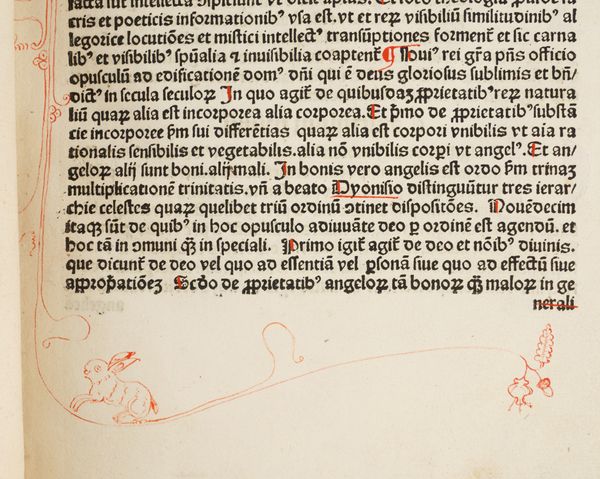 cris et poeticis informationibꝰ vsa est. vt et reꝝ visibiliū similitudinibꝰ al
legorice locutiões et mistici intellectꝰ transūptiones forment̃ et sic carna
libꝰ et visibilibꝰ spūalia ⁊ inuisibilia coaptent̃ ¶ Moui⁹ rei gr̄a pn̄s officio
opusculū ad edificationē domꝰ dn̄i qui ē deus gloriosus sublimis et bn̄/
dictꝰ in secula seculoꝝ In quo agit̃ de quibusdaꝫ ꝓprietatibꝰ reꝝ natura
liū quaꝝ alia est incorporea alia corporea. Et pͥmo de ꝓprietatibꝰ substā
cie incorporee ẜm sui differētias quaꝝ alia est corpori vnibilis vt aīa ra
tionalis sensibilis et vegetabilis. alia nō vnibilis corpri vt angelꝰ. Et an/
geloꝝ alij sunt boni. alij mali. In bonis vero angelis est ordo ẜm trinaꝫ
multiplicationē trinitatis. vn̄ a beato Dyonisio distinguūtur tres ierar/
chie celestes quaꝝ quelibet triū ordinū ꝯtinet dispositōes. Nouēdecim
itaqꝫ sūt de quibꝰ in hoc opusculo adiuuāte deo ꝑ ordinē est agendū. et
hoc tā in ꝯmuni qꝫ̄ in speciali. Primo igit̃ agit̃ de deo et nōibꝰ diuinis.
que dicunt̃ de deo vel quo ad essentiā vel ꝑsonā siue quo ad effectū siue
appropͥatiōeꝫ Scd̄o de ꝓprietatibꝰ angeloꝝ tā bonoꝝ qꝫ̄ maloꝝ in ge
nerali